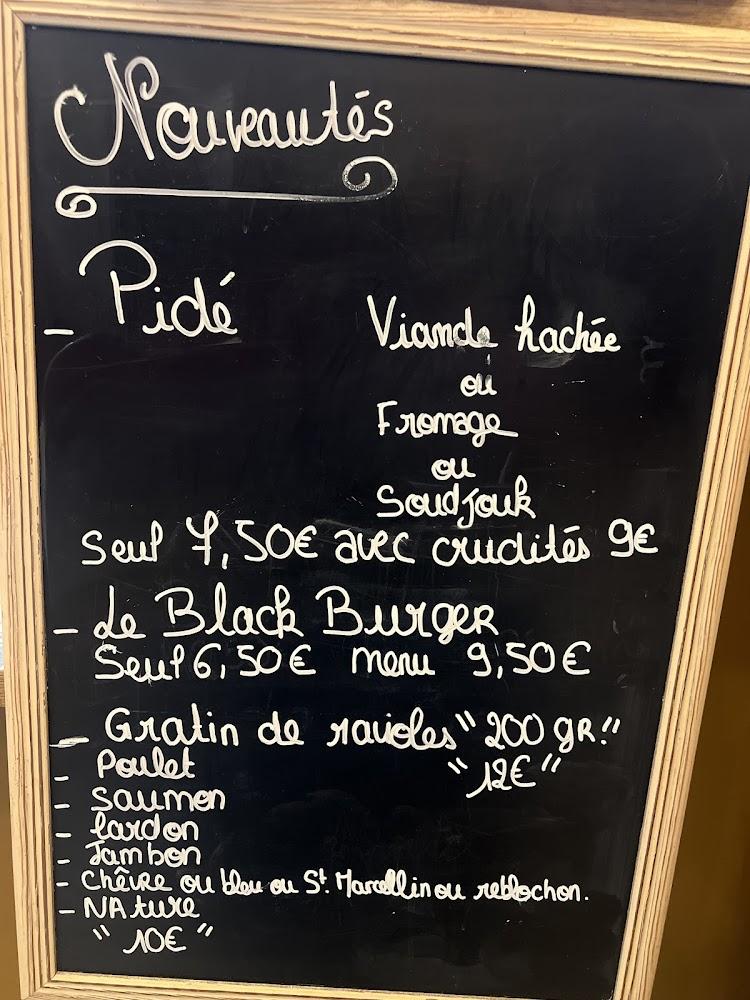 Nouveautés
- Pidé
Viande hachée
ou
Fromage
ou
Soudjouk
Seul 7,50€ avec crudités 9€
- Le Black Burger
Seul 6,50€ menu 9,50€
- Gratin de ravioles "200 gr."
- Poulet "12€"
- Saumon
- lardon
- Jambon
- Chêvre ou bleu ou St. Marcellin ou reblochon.
- NAture
"10€"